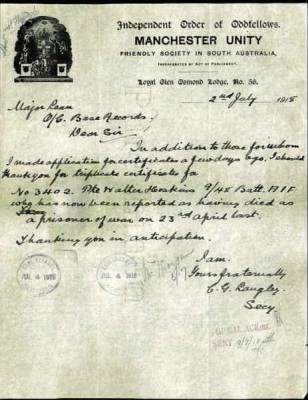 Independent Order of Oddfellows.
MANCHESTER UNITY
FRIENDLY SOCIETY IN SOUTH AUSTRALIA,
INCORPORATED BY ACT OF PARLIAMENT.
Loyal Glen Osmond Lodge, No. 56.
2nd July 1918
Major Lean
O/C. Base Records.
Dear Sir
In addition to those for whom
I made application for certificates a few days ago, I should
thank you for triplicate certificates for
No 3402. Pte Walter Hoskins 9/48 Batt. AIF
who has now been reported as having died as
a prisoner of war on 23rd April last.
Thanking you in anticipation.
I am.
Yours fraternally
C. G. Langley.
Secy.
JUL 4 1918
JUL 4 1918
SENT